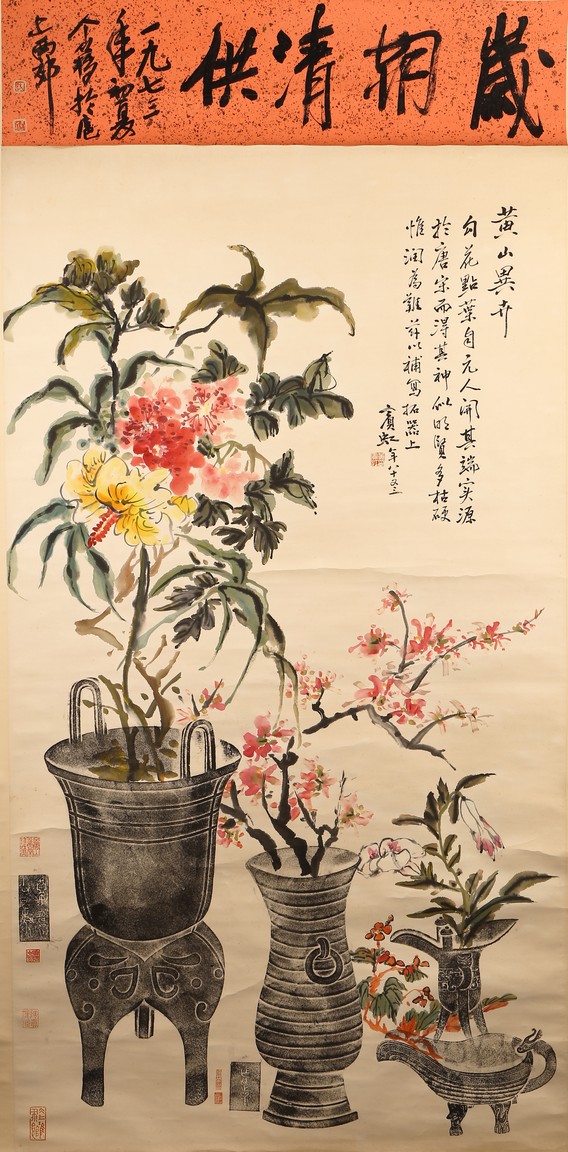 歲朝清供
一九七三
年初夏
个簃於滬
上西郊
黃山異卉
勾花點葉自元人開其端實源
於唐宋而得其神似明賢多枯硬
惟潤為難茲以補寫拓器上
賓虹年八十又三